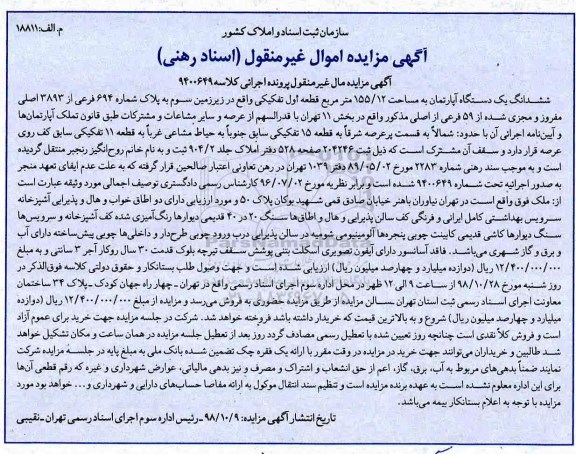 سازمان ثبت اسناد و املاک کشور
م. الف:۱۸۸۱۱
آگهی مزایده اموال غیرمنقول (اسناد رهنی)
آگهی مزایده مال غیرمنقول پرونده اجرائی کلاسه ۹۴۰۰۶۴۹
ششدانگ یک دستگاه آپارتمان به مساحت ۱۵۵/۱۲ متر مربع قطعه اول تفکیکی واقع در زیرزمین سوم به پلاک شماره ۶۹۴ فرعی از ۳۸۹۳ اصلی
مفروز و مجزی شده از ۵۹ فرعی از اصلی مذکور واقع در بخش ۱۱ تهران با قدرالسهم از عرصه و سایر مشاعات و مشترکات طبق قانون تملک آپارتمان‌ها
و آیین‌نامه اجرائی آن با حدود: شمالاً به قسمت پرعرصه شرقاً به قطعه ۱۵ تفکیکی سابق جنوباً به حیاط مشاعی غرباً به قطعه ۱۱ تفکیکی سابق کف روی
عرصه قرار دارد و سقف آن مشترک است که ذیل ثبت ۲۰۴۲۴۶ صفحه ۵۲۸ دفتر املاک جلد ۹۰۴/۲ ثبت و به نام خانم روح‌انگیز رنجبر منتقل گردیده
است و به موجب سند رهنی شماره ۲۲۸۳ مورخ ۸۹/۰۵/۰۲ دفتر ۱۰۳۹ تهران در رهن تعاونی اعتبار صالحین قرار گرفته که به علت عدم ایفای تعهد منجر
به صدور اجرائیه تحت شماره ۹۴۰۰۶۴۹ شده است و برابر نظریه مورخ ۹۶/۰۷/۰۲ کارشناس رسمی دادگستری توصیف اجمالی مورد وثیقه عبارت است
از: ملک فوق واقع است در تهران نیاوران باهنر خیابان صادق قمی شهید بوکان پلاک ۵۰ و مورد ارزیابی دارای دو اطاق خواب و هال و پذیرایی آشپزخانه
سرویس بهداشتی کامل ایرانی و فرنگی کف سالن پذیرایی و هال و اطاق‌ها سنگ ۲۰ در ۴۰ قدیمی دیوارها رنگ‌آمیزی شده کف آشپزخانه و سرویس‌ها
سنگ دیوارها کاشی قدیمی کابینت چوبی پنجره‌ها آلومینیومی شومینه در سالن پذیرایی درب ورود چوبی طرح‌دار و داخلی‌ها چوبی پیش‌ساخته دارای آب
و برق و گاز شهری می‌باشد. فاقد آسانسور دارای آیفون تصویری اسکلت بتنی پوشش سقف تیرچه بلوک قدمت ۳۰ سال روکار آجر ۳ سانتی و به مبلغ
۱۲/۴۰۰/۰۰۰/۰۰۰ ریال (دوازده میلیارد و چهارصد میلیون ریال) ارزیابی شده است و جهت وصول طلب بستانکار و حقوق دولتی کلاسه فوق‌الذکر در
روز شنبه مورخ ۹۸/۱۰/۲۸ از ساعت ۹ الی ۱۲ ظهر در محل اداره سوم اجرای اسناد رسمی واقع در تهران ـ چهار راه جهان کودک ـ پلاک ۳۴ ساختمان
معاونت اجرای اسناد رسمی ثبت استان تهران ـ سالن مزایده از طریق مزایده حضوری به فروش می‌رسد و مزایده از مبلغ ۱۲/۴۰۰/۰۰۰/۰۰۰ ریال (دوازده
میلیارد و چهارصد میلیون ریال) شروع و به بالاترین قیمت که خریدار داشته باشد فروخته خواهد شد. شرکت در جلسه مزایده جهت خرید برای عموم آزاد
است و فروش کلاً نقدی است چنانچه روز تعیین شده با تعطیل رسمی مصادف گردد روز بعد از تعطیل جلسه مزایده در همان ساعت و مکان تشکیل خواهد
شد طالبین و خریداران می‌توانند جهت خرید در مزایده در وقت مقرر با ارائه یک فقره چک تضمین شده بانک ملی به مبلغ پایه در جلسه مزایده شرکت
نمایند ضمناً بدهی‌های مربوط به آب، برق، گاز، اعم از حق انشعاب و اشتراک و مصرف و نیز بدهی مالیاتی، عوارض شهرداری و غیره که رقم قطعی آن‌ها
برای این اداره معلوم نشده است به عهده برنده مزایده است و تنظیم سند انتقال موکول به ارائه مفاصا حساب‌های دارایی و شهرداری و... خواهد بود مورد
مزایده با توجه به اعلام بستانکار بیمه می‌باشد.
تاریخ انتشار آگهی مزایده: ۹۸/۱۰/۹ ـ رئیس اداره سوم اجرای اسناد رسمی تهران ـ نقیبی